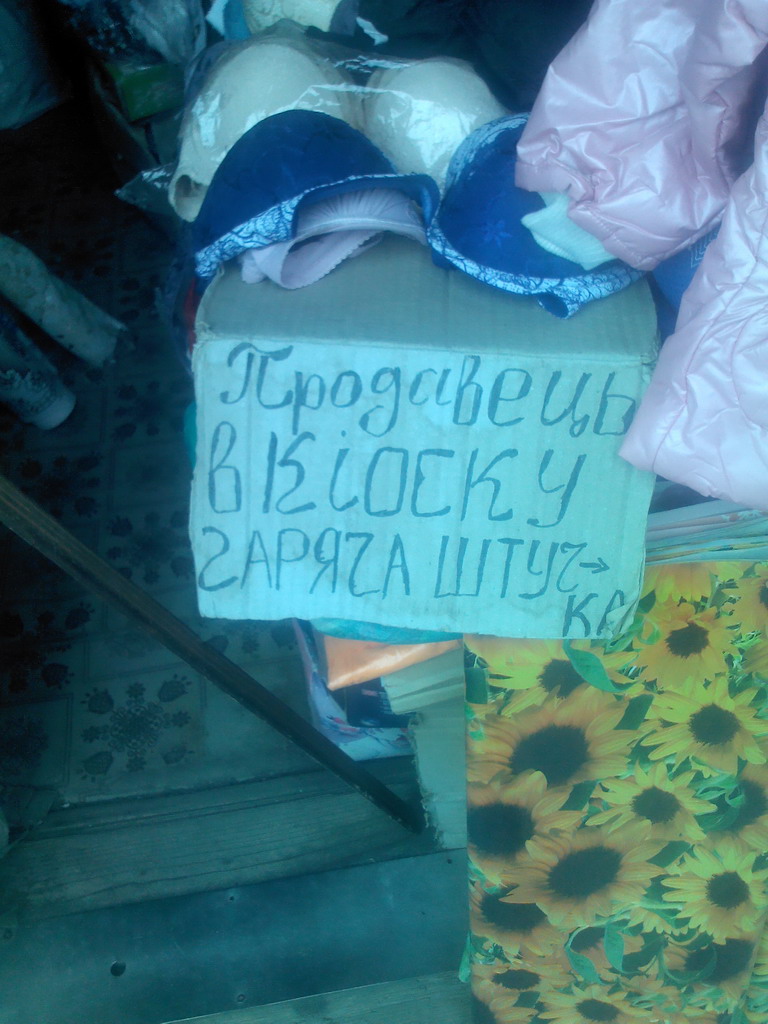 Продавець
в кіоску
гаряча штуч→
ка